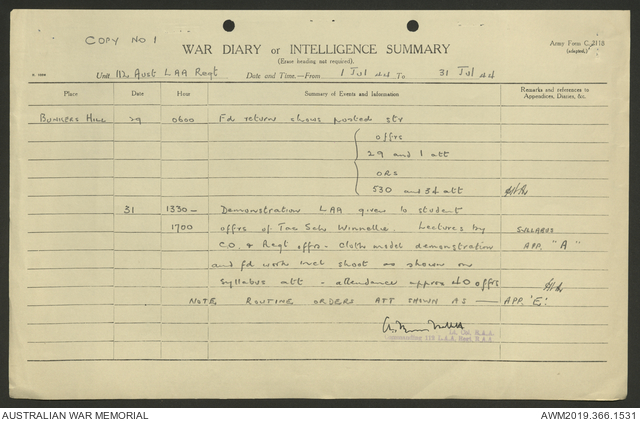 COPY NO 1
WAR DIARY or INTELLIGENCE SUMMARY
(Erase heading not required).
Army Form C. 2118
(adapted.)
Unit 112 Aust LAA Regt Date and Time.—From 1 Jul 44 To 31 Jul 44
Place Date Hour Summary of Events and Information Remarks and references to Appendices, Diaries, &c.
BUNKERS HILL 29 0600 Fd return shows posted str
offrs
29 and 1 att
ORS
530 and 34 att
31 1330- Demonstration LAA given to student
1700 offrs of Tac Sch Winnellie. Lectures by SYLLABUS
C.O. & Regt offrs - Cloth model demonstration APP. "A"
and fd work incl shoot as shown on
syllabus att - attendance approx 40 offrs
NOTE ROUTINE ORDERS ATT SHOWN AS — APP. 'E'.
Lt. Col. R.A.A.
Commanding 112 L.A.A. Regt. R.A.A.
AUSTRALIAN WAR MEMORIAL
AWM2019.366.1531